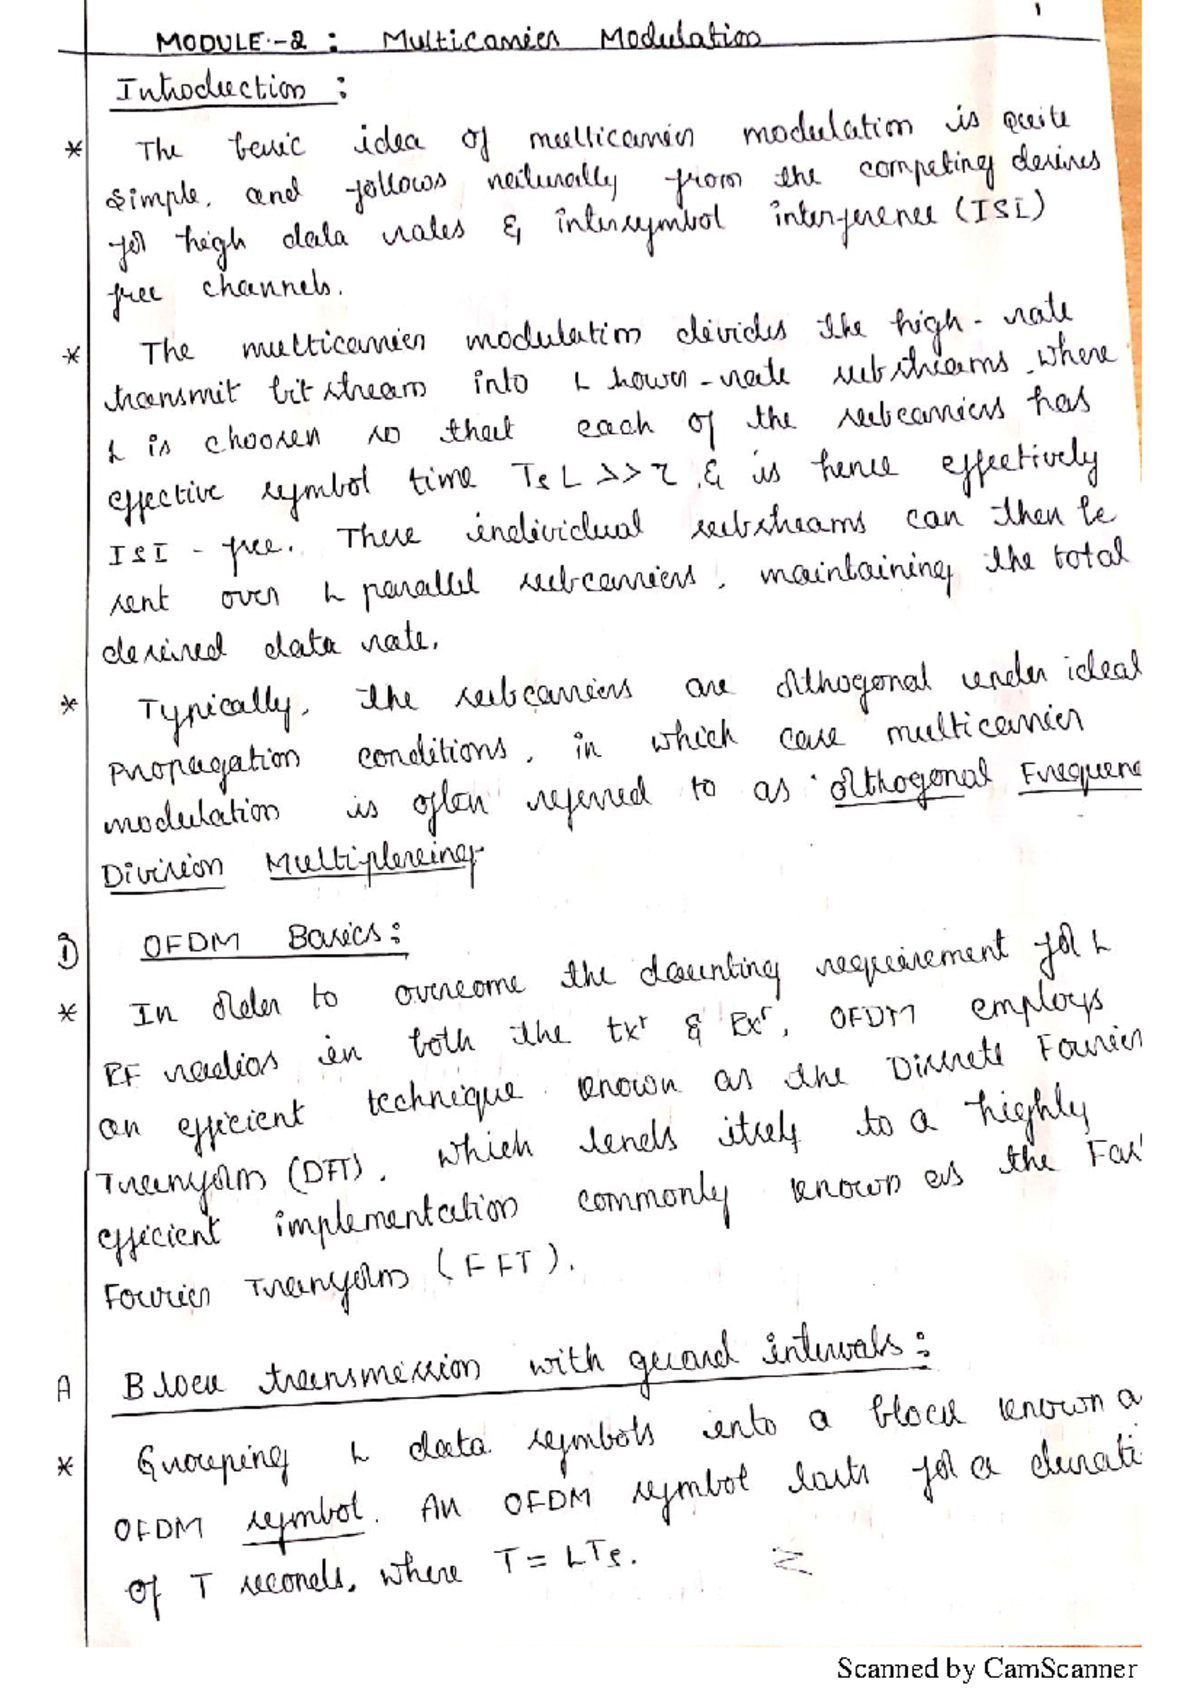 1
MODULE-2 : Multicarrier Modulation
Introduction :
* The basic idea of multicarrier modulation is quite
simple, and follows naturally from the competing desires
for high data rates & intersymbol interference (ISI)
free channels.
* The multicarrier modulation divides the high-rate
transmit bit stream into L lower-rate substreams, where
L is choosen so that each of the subcarriers has
effective symbol time TsL >> τ, & is hence effectively
ISI-free. These individual substreams can then be
sent over L parallel subcarriers, maintaining the total
desired data rate.
* Typically, the subcarriers are orthogonal under ideal
propagation conditions, in which case multicarrier
modulation is often referred to as orthogonal Frequenc
Division Multiplexing
1) OFDM Basics :
* In order to overcome the daunting requirement for L
RF radios in both the txr & Rxr, OFDM employs
an efficient technique known as the Discrete Fourier
Transform (DFT), which lends itself to a highly
efficient implementation commonly known as the Fas
Fourier Transform (FFT).
A Block transmission with guard intervals :
* Grouping L data symbols into a block known a
OFDM symbol. An OFDM symbol lasts for a durati
of T seconds, where T = LTs.
Scanned by CamScanner